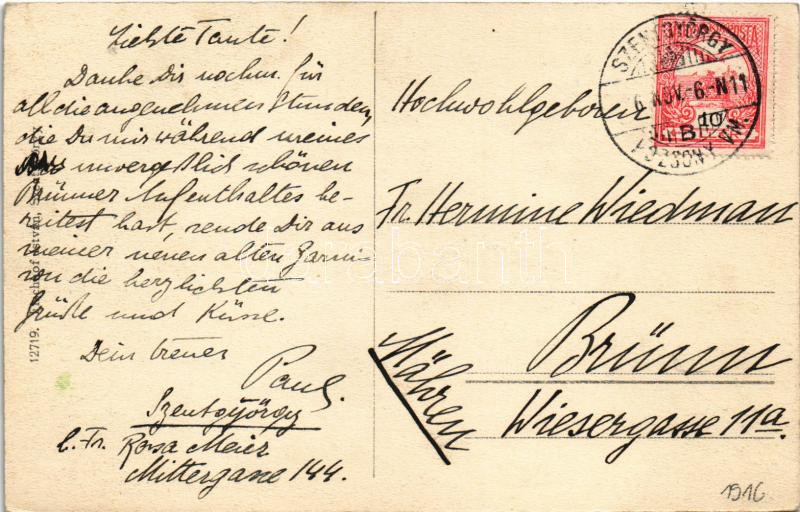 Liebste Tante!
Danke Dir nochm. für
all die angenehmen Stunden,
die Du mir während meines
unvergeßlich schönen
Brünner Aufenthaltes be-
reitest hast, sende Dir aus
meiner neuen alten Garni-
son die herzlichsten
Grüße und Küsse.
Dein treuer
Paul.
Szentgyörgy
b. Fr. Rosa Meier
Mittergasse 144.
Hochwohlgeboren
Fr. Hermine Wiedman
Brünn
Wiesergasse 11a.
Mähren
SZENTGYÖRGY
NOV. 6.-N11
B
POZSONY VM.
10
12719.
István,
darabanth
1916